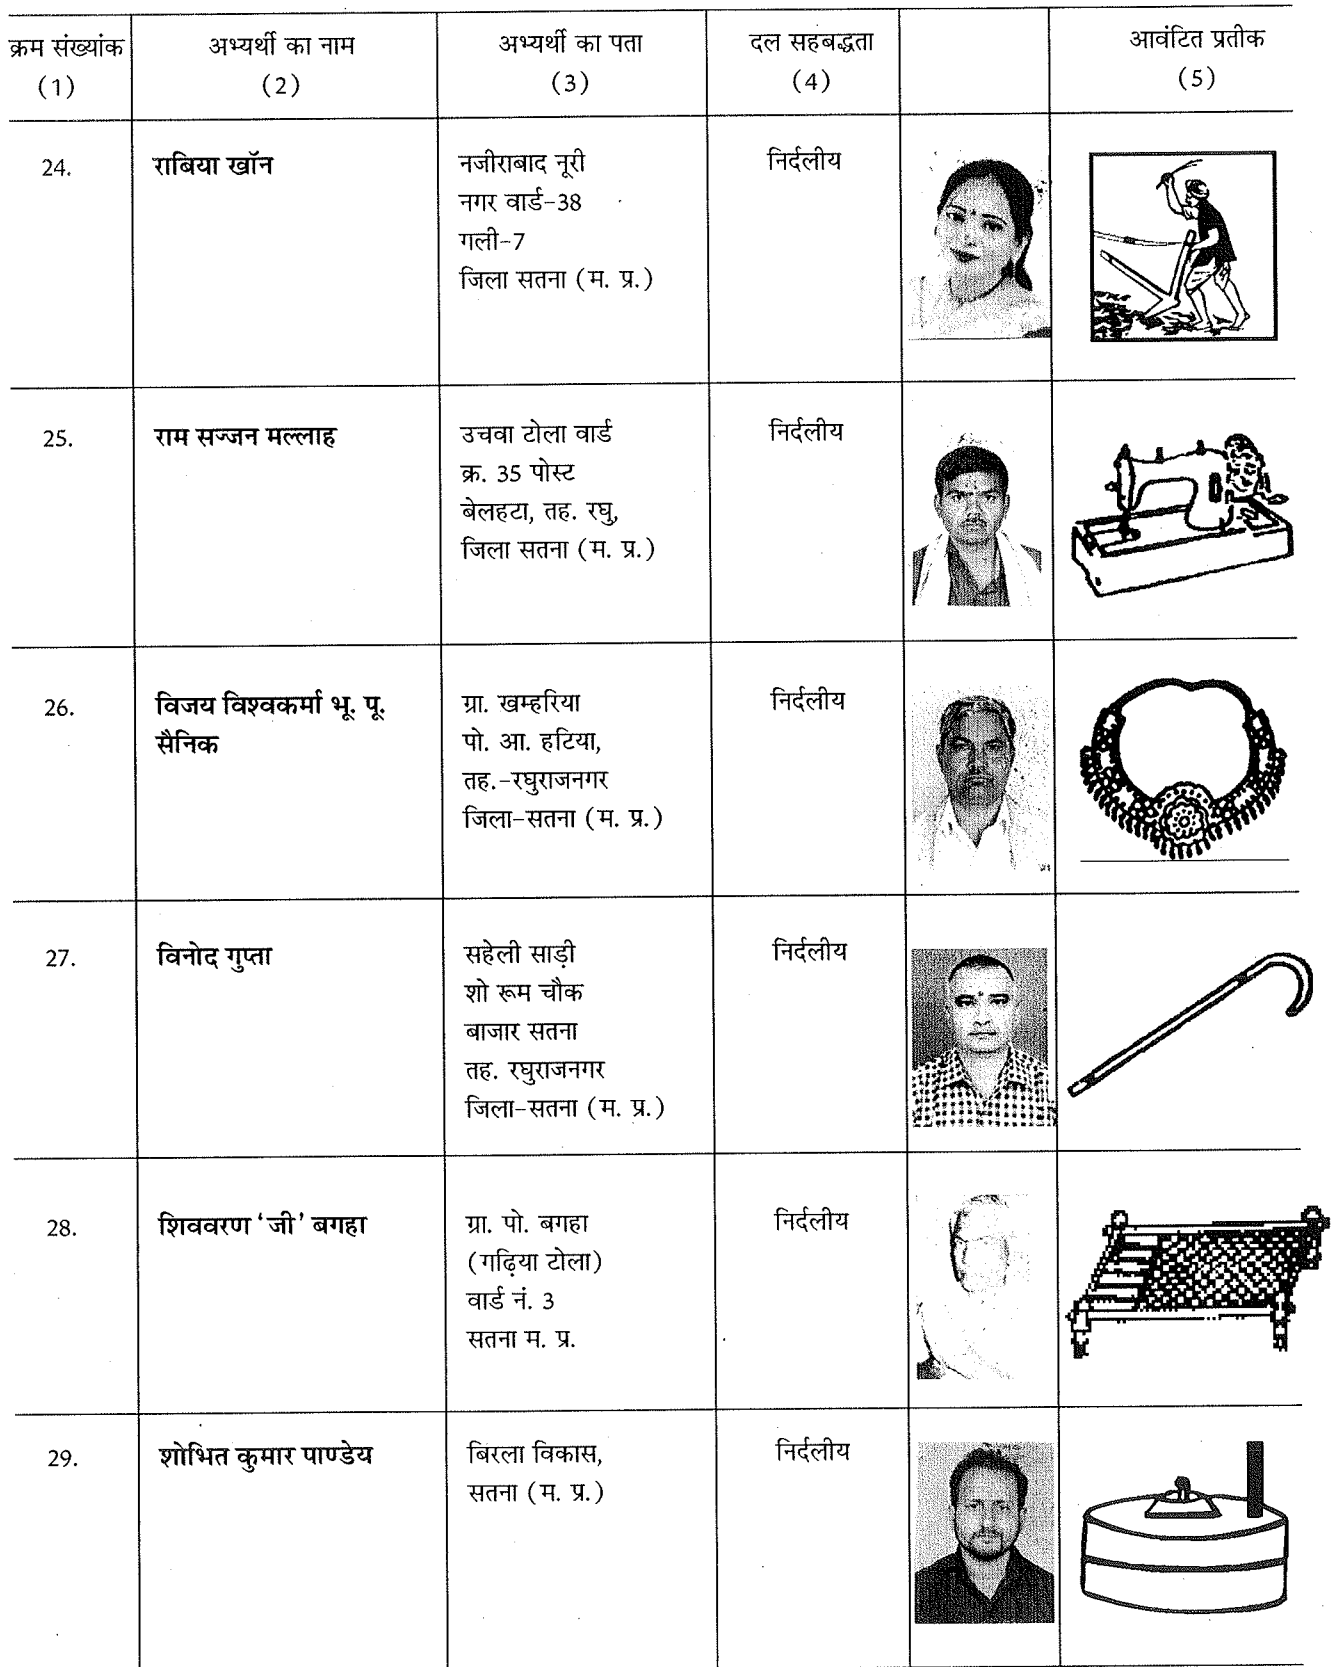 क्रम संख्यांक
(1)
अभ्यर्थी का नाम
(2)
अभ्यर्थी का पता
(3)
दल सहबद्धता
(4)
आवंटित प्रतीक
(5)
24.
राबिया खॉन
नजीराबाद नूरी
नगर वार्ड-38
गली-7
जिला सतना (म. प्र.)
निर्दलीय
25.
राम सज्जन मल्लाह
उचवा टोला वार्ड
क्र. 35 पोस्ट
बेलहटा, तह. रघु,
जिला सतना (म. प्र.)
निर्दलीय
26.
विजय विश्वकर्मा भू. पू.
सैनिक
ग्रा. खम्हरिया
पो. आ. हटिया,
तह.-रघुराजनगर
जिला-सतना (म. प्र.)
निर्दलीय
27.
विनोद गुप्ता
सहेली साड़ी
शो रूम चौक
बाजार सतना
तह. रघुराजनगर
जिला-सतना (म. प्र.)
निर्दलीय
28.
शिववरण ‘जी’ बगहा
ग्रा. पो. बगहा
(गढ़िया टोला)
वार्ड नं. 3
सतना म. प्र.
निर्दलीय
29.
शोभित कुमार पाण्डेय
बिरला विकास,
सतना (म. प्र.)
निर्दलीय